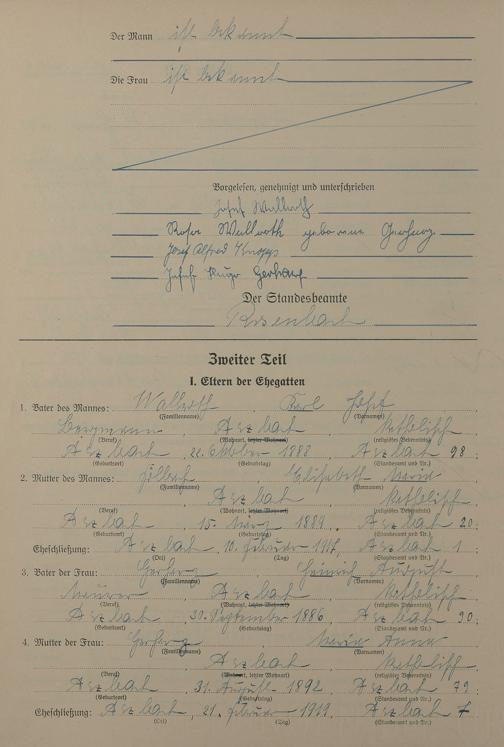 Der Mann ist bekannt
Die Frau ist bekannt
Vorgelesen, genehmigt und unterschrieben
Josef Wallroth
Rosa Wallroth geborene Gerharz
Josef Alfred Knopp
Josef Hugo Gerharz
Der Standesbeamte
Rosenbach
Zweiter Teil
I. Eltern der Ehegatten
1. Vater des Mannes: Wallroth, Karl Josef
(Familienname) (Vorname)
Bergmann, Arzbach, katholisch
(Beruf) (Wohnort, letzter Wohnort) (religiöses Bekenntnis)
Arzbach, 22. Oktober 1888, Arzbach 98;
(Geburtsort) (Geburtstag) (Standesamt und Nr.)
2. Mutter des Mannes: Elisabeth Maria
(Familienname) (Vornamen)
Arzbach, katholisch
(Beruf) (Wohnort, letzter Wohnort) (religiöses Bekenntnis)
Arzbach, 15. März 1889, Arzbach 20;
(Geburtsort) (Geburtstag) (Standesamt und Nr.)
Eheschließung: Arzbach, 10. Februar, Arzbach 1;
(Ort) (Tag) (Standesamt und Nr.)
3. Vater der Frau: Gerharz, Heinrich August
(Familienname) (Vornamen)
Maurer, Arzbach, katholisch
(Beruf) (Wohnort, letzter Wohnort) (religiöses Bekenntnis)
Arzbach, 30. September 1886, Arzbach 90;
(Geburtsort) (Geburtstag) (Standesamt und Nr.)
4. Mutter der Frau: Gerharz, Maria Anna
(Familienname) (Vornamen)
Arzbach, katholisch
(Beruf) (Wohnort, letzter Wohnort) (religiöses Bekenntnis)
Arzbach, 31. August 1892, Arzbach 79;
(Geburtsort) (Geburtstag) (Standesamt und Nr.)
Eheschließung: Arzbach, 21. Februar 1919, Arzbach 7
(Ort) (Tag) (Standesamt und Nr.)